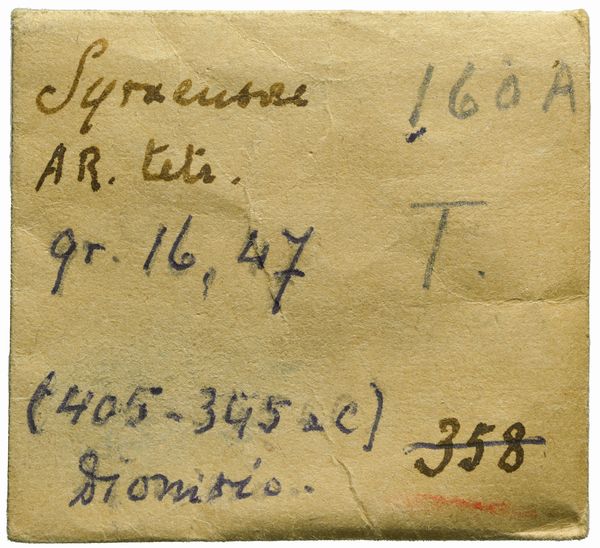 Syracusae 160A
AR. tetr.
T.
gr. 16,47
(405-345 a C)
Dionisio.
358